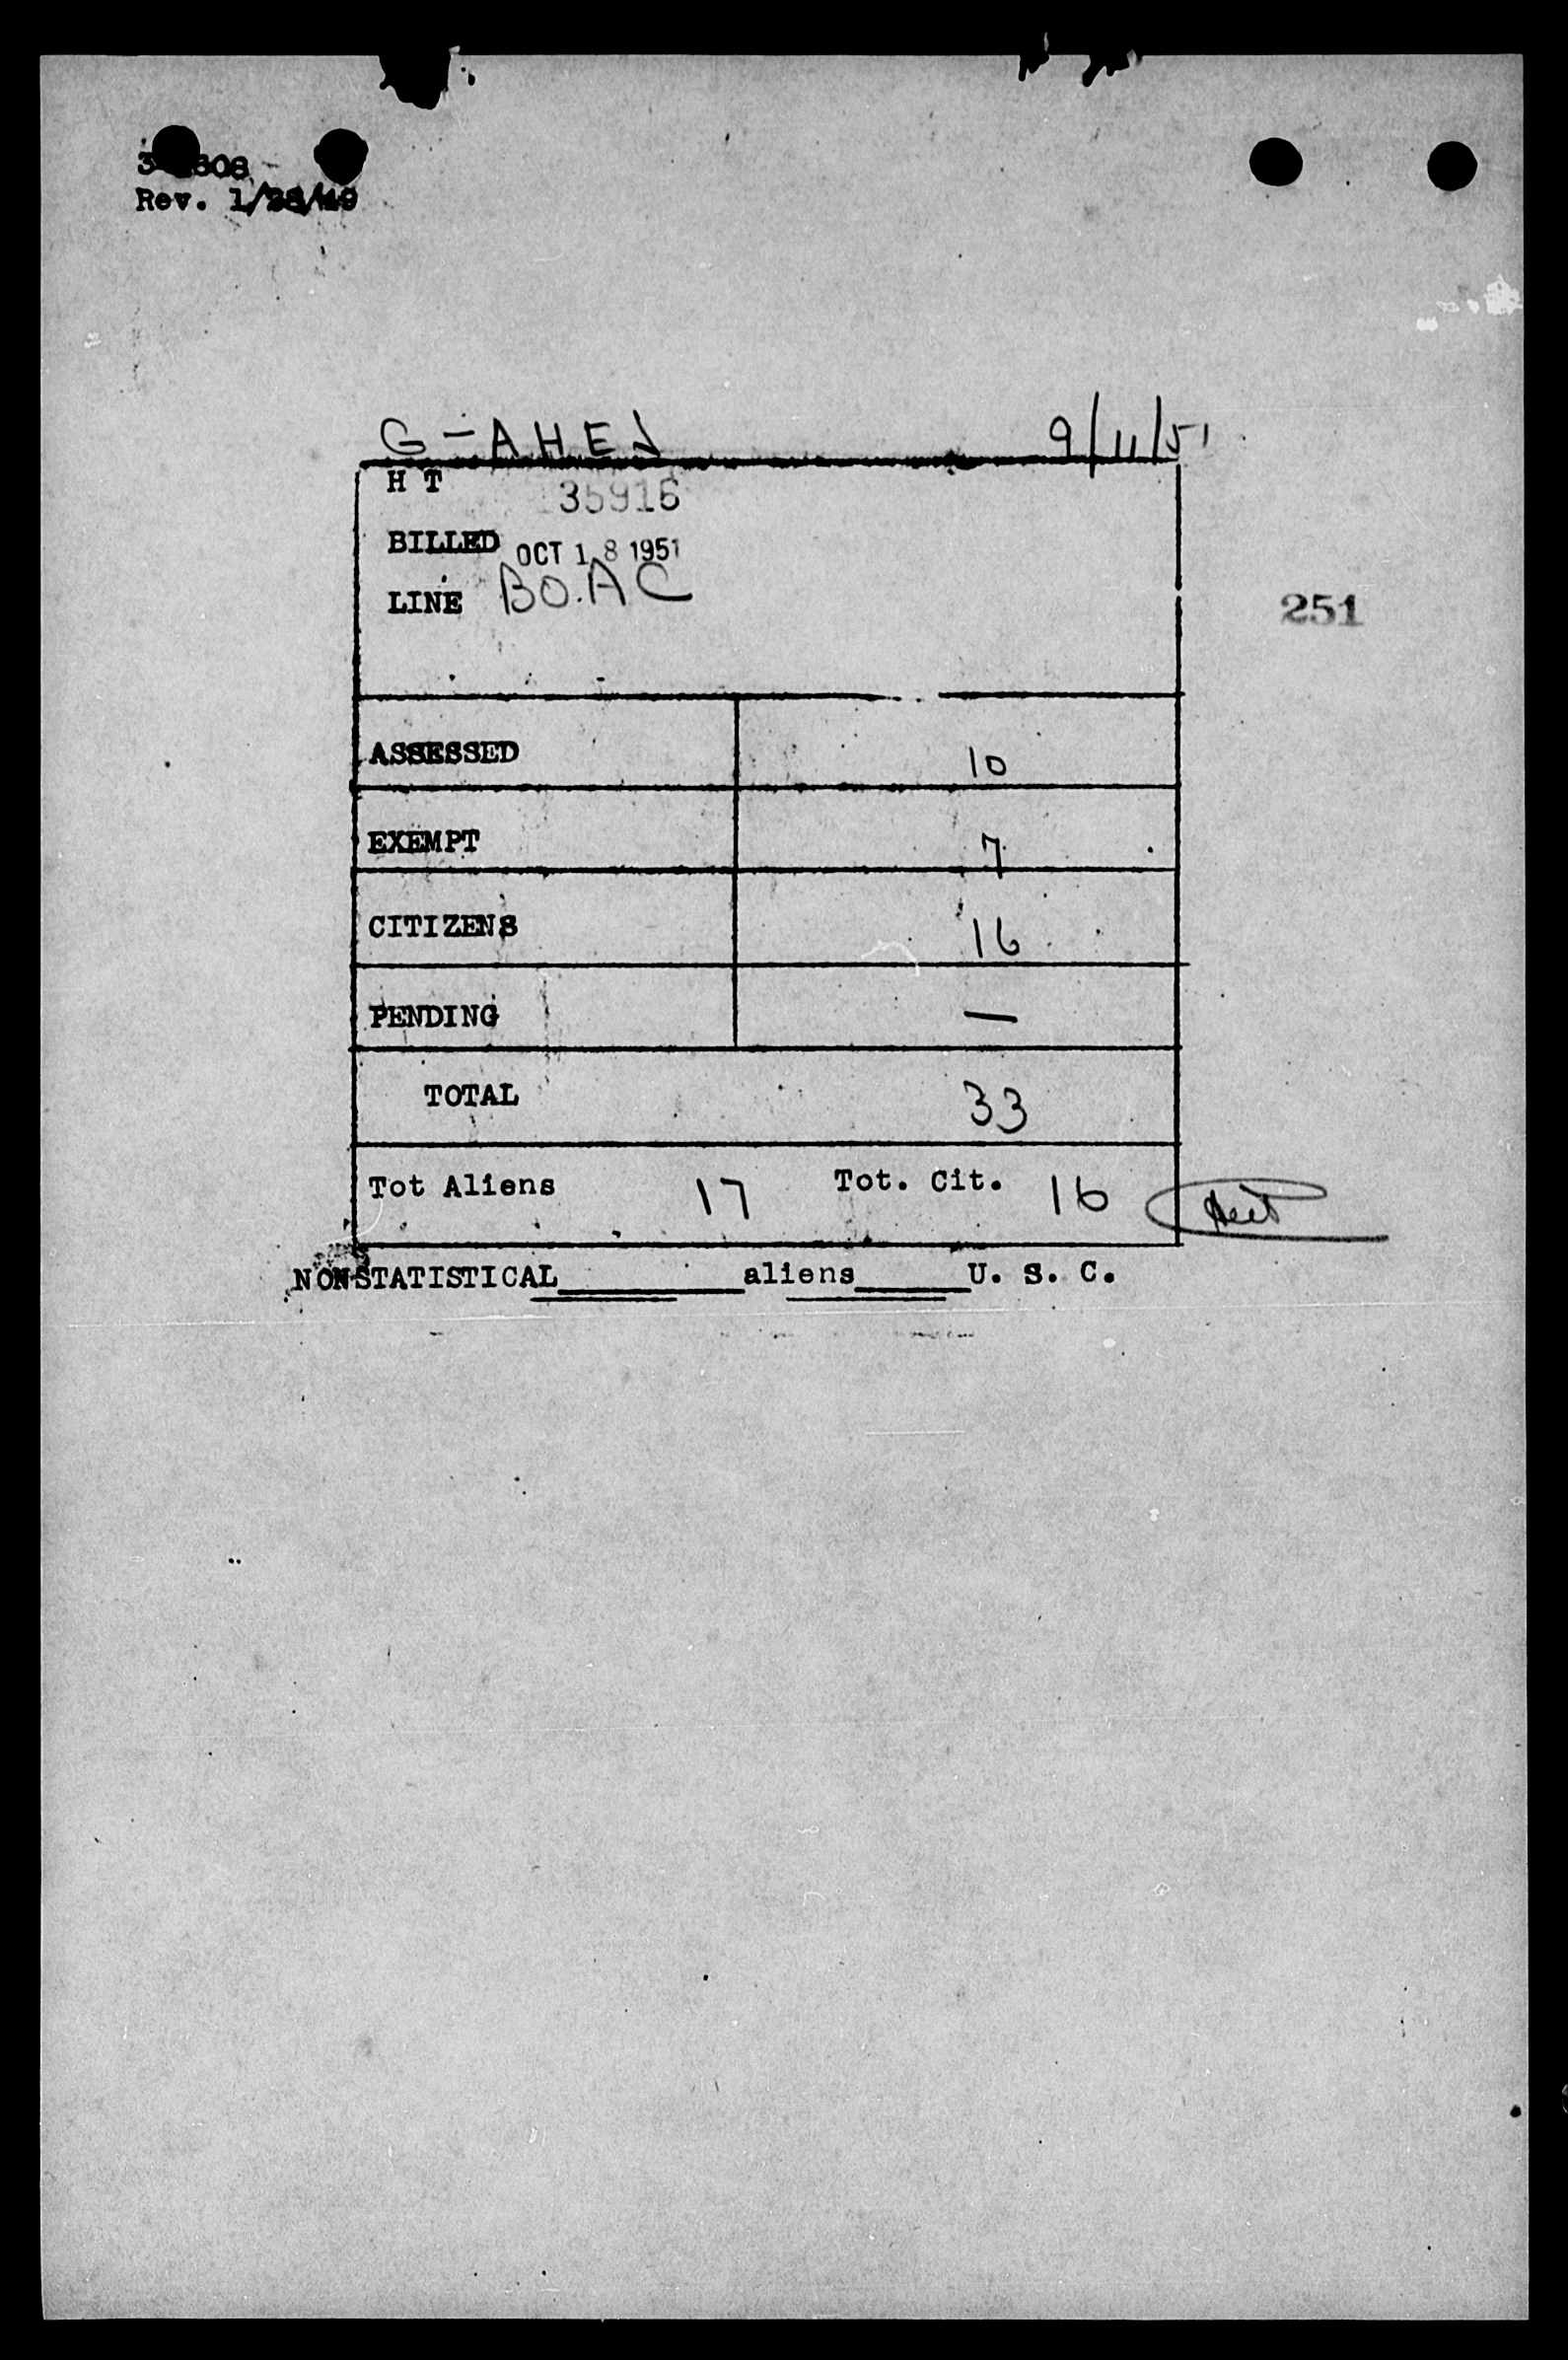 Rev. 1/28/49
G-AHEJ 9/11/51
H T 35916
BILLED OCT 18 1951
LINE BO.AC
251
ASSESSED 10
EXEMPT 7
CITIZENS 16
PENDING —
TOTAL 33
Tot Aliens 17 Tot. Cit. 16
NONSTATISTICAL________aliens_____U. S. C.